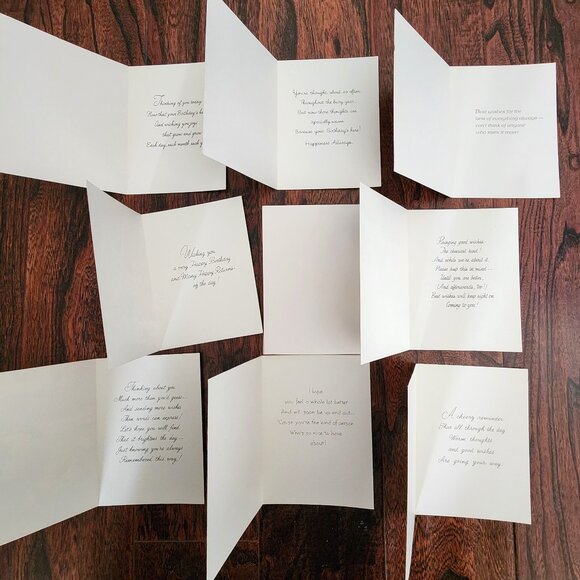 Thinking of you today
Now that your Birthday's here
And wishing you joys
that grow and grow
Each day, each month, each
You're thought about so often
Throughout the busy year,
But now those thoughts are
specially warm
Because your Birthday's here!
Happiness Always.
Best wishes for the
best of everything always—
can't think of anyone
who rates it more!
Wishing you
a very Happy Birthday
and Many Happy Returns
of the day.
Bringing good wishes
The cheeriest kind!
And while we're about it,
Please keep this in mind—
Until you are better,
(And afterwards, too!)
Best wishes will keep right on
Coming to you!
Thinking about you
Much more than you'd guess—
And sending more wishes
Than words can express!
Let's hope you will find
That it brightens the day—
Just knowing you're always
Remembered this way!
I hope
you feel a whole lot better
And will soon be up and out—
'Cause you're the kind of person
Who's so nice to have
about!
A cheery reminder
That all through the day
Warm thoughts
and good wishes
Are going your way.